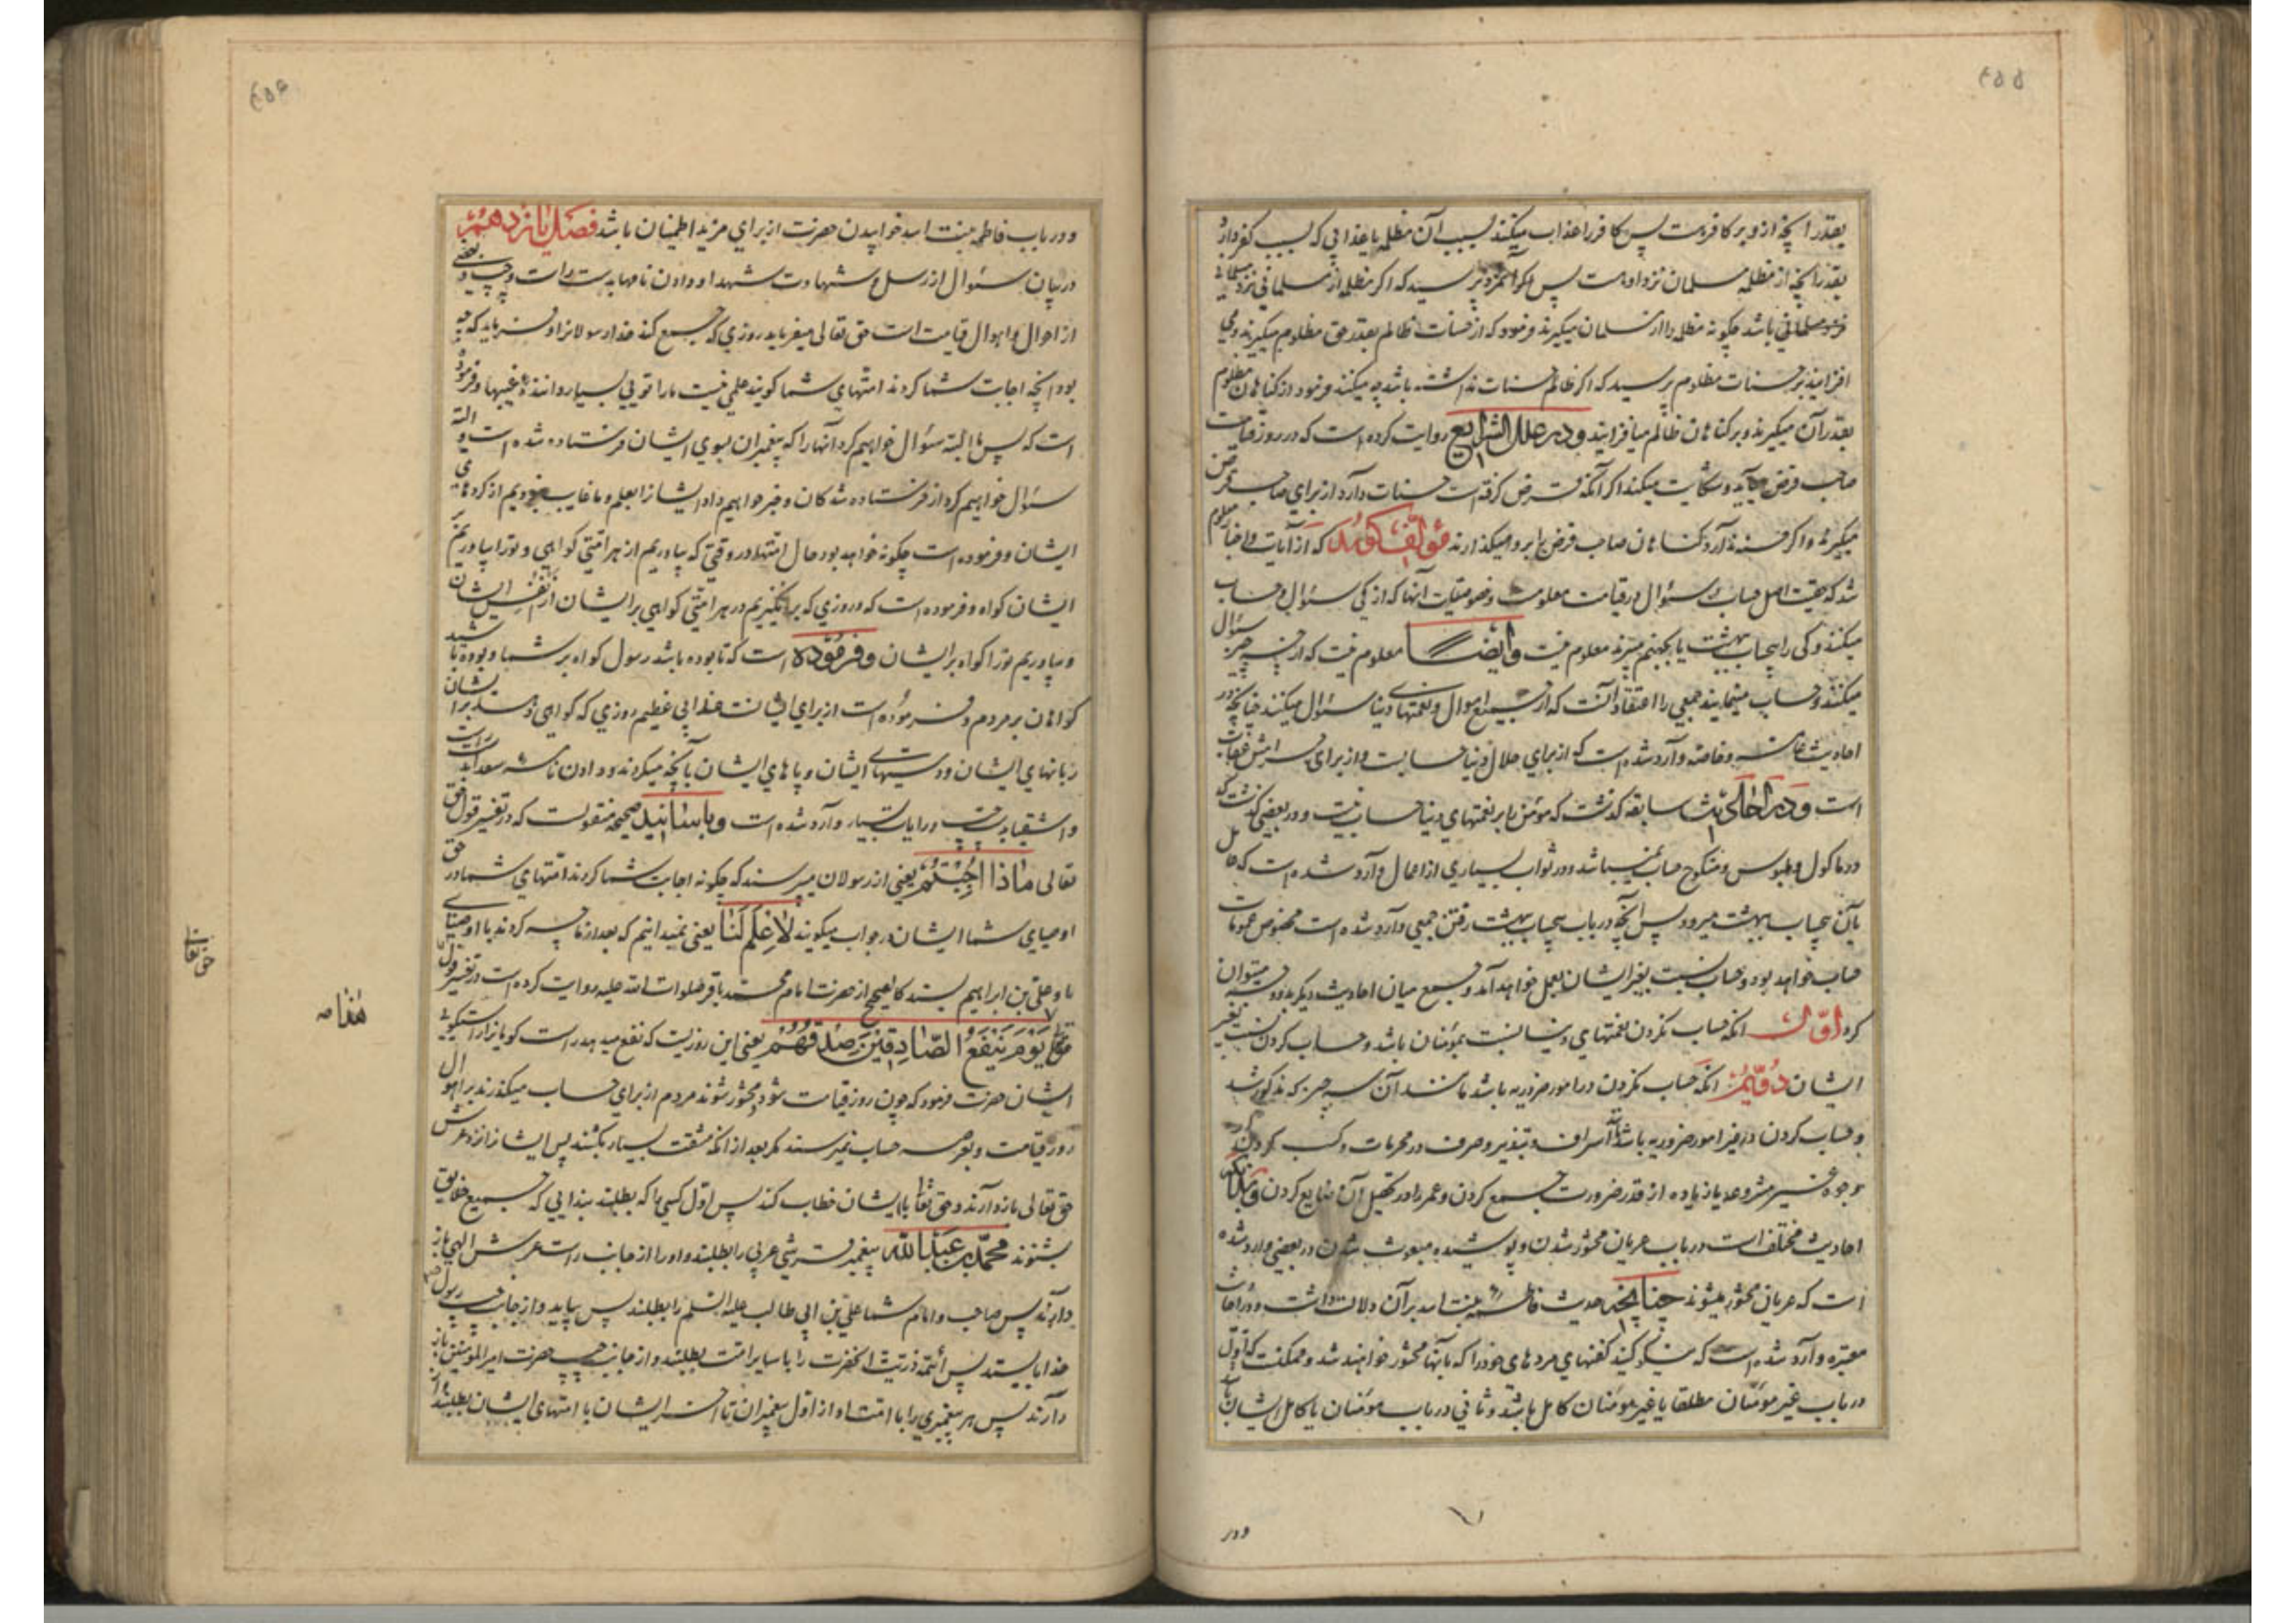 ۴۵۵
بقدر آنچه از او بر کافر هست پس کافر را عذاب میکنند بسبب آن مظلمه با عذابی که بسبب کفر دارد
بقدر آنچه از مظلمه مسلمان نزد او هست پس آن مرد پرسید که اگر مظلمه از مسلمانی نزد مسلمانی
باشد چگونه مظلمه را از مسلمان میگیرند فرمود که از حسنات ظالم بقدر حق مظلوم میگیرند و می
افزایند بر حسنات مظلوم پرسید که اگر ظالم حسنات نداشته باشد چه میکنند فرمود از گناهان مظلوم
بقدر آن میگیرند و بر گناهان ظالم میافزایند و در علل الشرایع روایت کرده است که در روز قیامت
صاحب قرض میآید و شکایت میکند اگر آنکه قرض گرفته است حسنات دارد از برای صاحب قرض
میگیرند و اگر حسنه ندارد گناهان صاحب قرض را بر او میگذارند مؤلف گوید که از آیات و اخبار معلوم
شد که حقیت اصل حساب و سئوال در قیامت معلومست و خصوصیات آنها که از کی سئوال و حساب
میکنند و کی را بیحساب بهشت یا بجهنم میبرند معلوم نیست و ایضا معلوم نیست که از چه چیز سئوال
میکنند و حساب مینمایند جمعی را اعتقاد آنست که از جمیع اموال و نعمتهای دنیا سئوال میکنند چنانچه در
احادیث عامه و خاصه وارد شده است که از برای حلال دنیا حسابیست و از برای حرامش عقاب
است و در احادیث سابقه گذشت که مؤمن را بر نعمتهای دنیا حساب نیست و در بعضی گذشت که
در ماکول و ملبوس و منکوح حساب نمیباشد و در ثواب بسیاری از اعمال وارد شده است که عامل
بآن بیحساب ببهشت میرود پس آنچه در باب بیحساب ببهشت رفتن جمعی وارد شده است مخصوص عمومات
حساب خواهد بود و حساب نسبت بغیر ایشان بعمل خواهد آمد و جمع میان احادیث دیگر بدو وجه میتوان
کرد اوّل آنکه حساب نکردن نعمتهای دنیا نسبت بمؤمنان باشد و حساب کردن نسبت بغیر
ایشان دویّم آنکه حساب نکردن در امور ضروریه باشد مانند آن سه چیز که مذکور شد
و حساب کردن در غیر امور ضروریه باشد مانند اسراف و تبذیر و صرف در محرمات و کسب کردن
بوجوه غیر مشروعه یا زیاده از قدر ضرورت جمع کردن و عمر را در تحصیل آن ضایع کردن و بدانکه
احادیث مختلف است در باب عریان محشور شدن و پوشیده مبعوث شدن در بعضی وارد شده
است که عریان محشور میشوند چنانچه حدیث فاطمه بنت اسد بر آن دلالت داشت و در احادیث
معتبره وارد شده است که نیکو کنید کفنهای مردهای خود را که بآنها محشور خواهند شد و ممکنست که اوّل
در باب غیر مؤمنان مطلقا یا غیر مؤمنان کامل باشد و ثانی در باب مؤمنان یا کامل ایشان باشد
و در
۴۵۶
و در باب فاطمه بنت اسد خوابیدن حضرت از برای مزید اطمینان باشد فصل پانزدهم
در بیان سئوال از رسل و شهادت شهدا و دادن نامها بدست راست و چپ و بعضی
از احوال و اهوال قیامت است حق تعالی میفرماید روزی که جمع کند خدا رسولانرا و فرماید که چه
بود آنچه اجابت شما کردند امتهای شما گویند علمی نیست ما را توئی بسیار داننده غیبها و فرموده
است که پس البته سئوال خواهیم کرد آنها را که پیغمبران بسوی ایشان فرستاده شده است و البته
سئوال خواهیم کرد از فرستاده شدگان و خبر خواهیم داد ایشانرا بعلم و ما غایب نبودیم از کردهای
ایشان و فرموده است چگونه خواهد بود حال امتها در وقتی که بیاوریم از هر امتی گواهی و تو را بیاوریم بر
ایشان گواه و فرموده است که در روزی که بر انگیزیم در هر امتی گواهی بر ایشان از نفس ایشان
و بیاوریم تو را گواه بر ایشان و فرموده است که تا بوده باشد رسول گواه بر شما و بوده باشید
گواهان بر مردم و فرموده است از برای ایشانست عذابی عظیم روزی که گواهی دهند بر ایشان
زبانهای ایشان و دستهای ایشان و پاهای ایشان بآنچه میکردند و دادن نامه سعدا بدست راست
و اشقیا بدست چپ در آیات بسیار وارد شده است و باسانید صحیحه منقولست که در تفسیر قول حق
تعالی ماذا اجبتم یعنی از رسولان میپرسند که چگونه اجابت شما کردند امتهای شما در حق
اوصیای شما ایشان در جواب میگویند لا علم لنا یعنی نمیدانیم که بعد از ما چه کردند با اوصیای
ما و علی بن ابراهیم بسند کالصحیح از حضرت امام محمد باقر صلوات الله علیه روایت کرده است در تفسیر قول
حق تعالی
هذا
یوم ینفع الصادقین صدقهم یعنی این روزیست که نفع میدهد راست گویانرا راستگویی
ایشان حضرت فرمود که چون روز قیامت شود و محشور شوند مردم از برای حساب میگذرند بر اهوال
روز قیامت و بعرصه حساب نمیرسند مگر بعد از آنکه مشقت بسیار بکشند پس ایشانرا نزد عرش
حق تعالی باز دارند و حق تعالی بایشان خطاب کند پس اول کسی را که بطلبند بندائی که جمیع خلایق
بشنوند محمد بن عبدالله پیغمبر قرشی عربی را بطلبند و او را از جانب راست عرش الهی باز
دارند پس صاحب و امام شما علی بن ابی طالب علیه السلم را بطلبند پس بیاید و از جانب چپ رسول
خدا بایستد پس ائمه ذریت آنحضرت را با سایر امت بطلبند و از جانب چپ حضرت امیر المؤمنین باز
دارند پس هر پیغمبری را با امت او از اول پیغمبران تا آخر ایشان با امتهای ایشان بطلبند